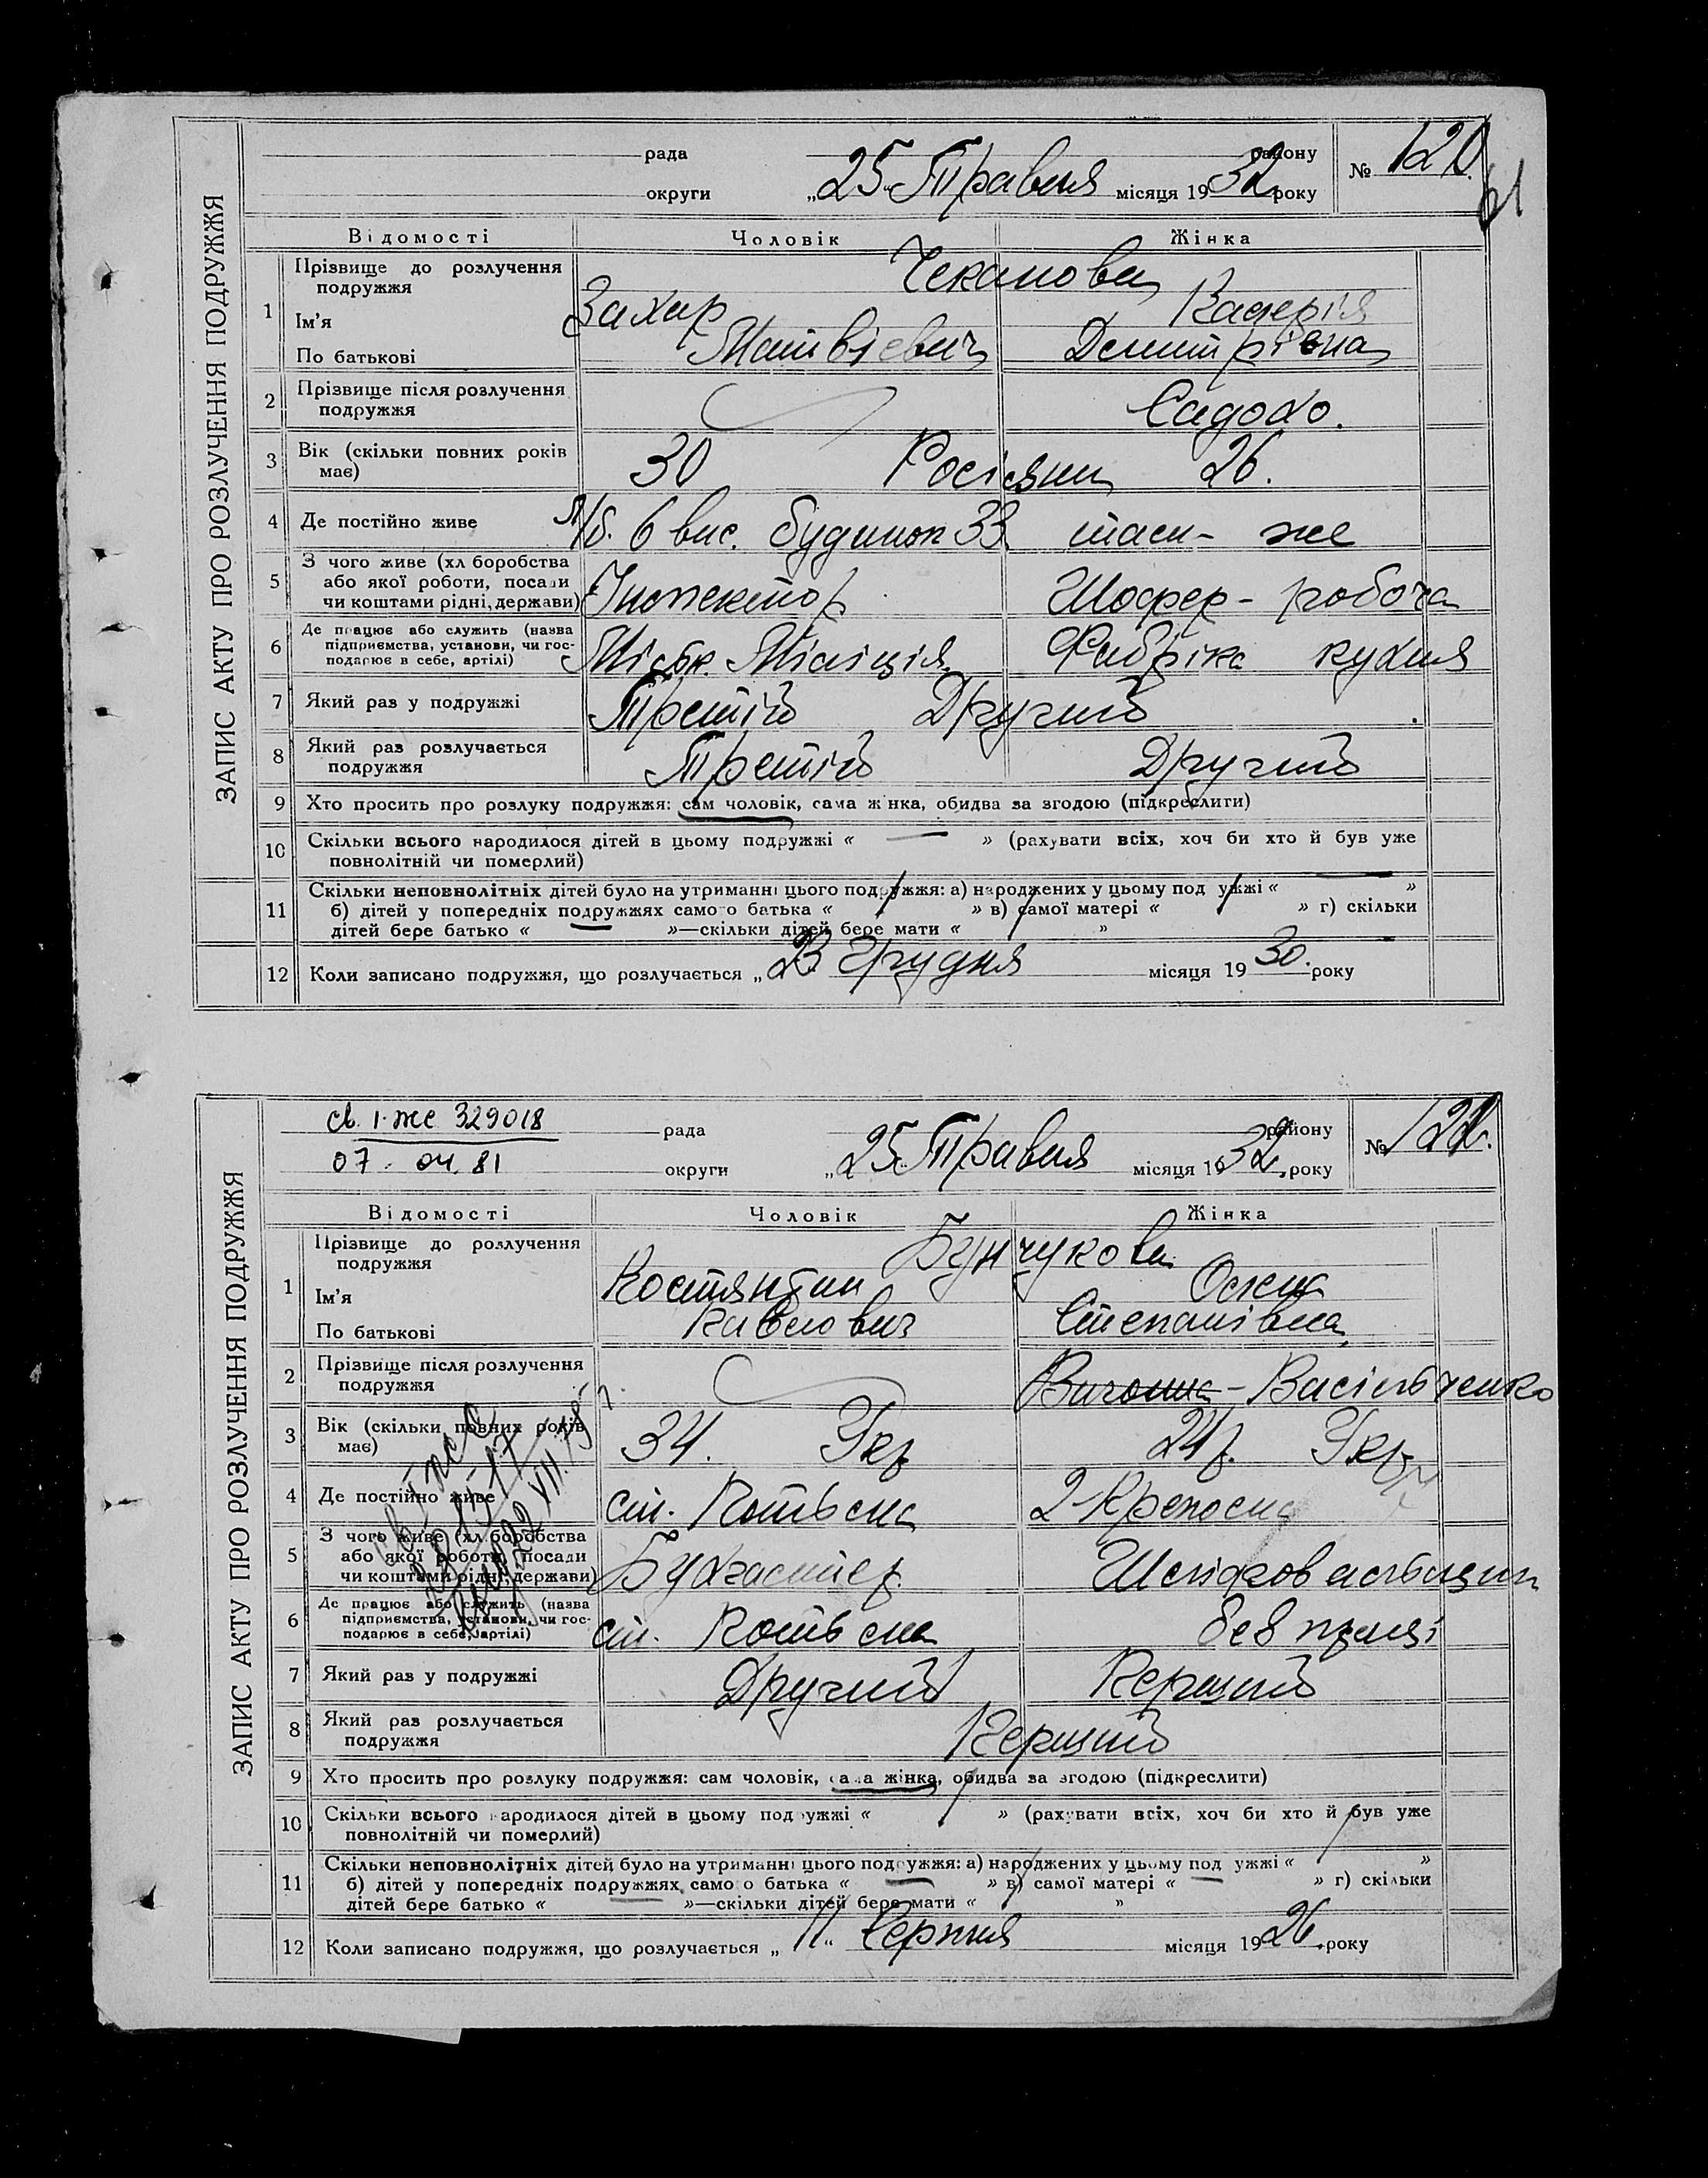 ЗАПИС АКТУ ПРО РОЗЛУЧЕННЯ ПОДРУЖЖЯ
рада району
округи „25„ Травня місяця 1932 року
№ 121.
61
Відомості Чоловік Жінка
1 Прізвище до розлучення подружжя Чеканови
Ім'я Захар Валерія
По батькові Матвієвич Демитрівна
2 Прізвище після розлучення подружжя Садохо.
3 Вік (скільки повних років має) 30 Росіяни 26.
4 Де постійно живе 6 вис. будинок 33. там-же
5 З чого живе (хліборобства
або якої роботи, посади
чи коштами рідні, держави) Інспектор Шофер - робоча
6 Де працює або служить (назва
підприємства, установи, чи гос-
подарює в себе, артілі) Міськ. Міліція Фабріка кухня
7 Який раз у подружжі Третій Другий
8 Який раз розлучається подружжя Третій Другий
9 Хто просить про розлуку подружжя: сам чоловік, сама жінка, обидва за згодою (підкреслити)
10 Скільки всього народилося дітей в цьому подружжі « — » (рахувати всіх, хоч би хто й був уже
повнолітній чи померлий)
11 Скільки неповнолітніх дітей було на утриманні цього подружжя: а) народжених у цьому подружжі « — »
б) дітей у попередніх подружжях самого батька « » в) самої матері « » г) скільки
дітей бере батько « »—скільки дітей бере мати « »
12 Коли записано подружжя, що розлучається „23 Грудня місяця 1930. року
ЗАПИС АКТУ ПРО РОЗЛУЧЕННЯ ПОДРУЖЖЯ
св. І-же 329018 рада району
07.04.81 округи „25„ Травня місяця 1932, року
№ 122.
Відомості Чоловік Жінка
1 Прізвище до розлучення подружжя Бунчукови
Ім'я Костянтин
По батькові Павлович Степанівна
2 Прізвище після розлучення подружжя - Васільченко
3 Вік (скільки повних років має) 34. Укр 24р. Укр.
4 Де постійно живе ст. 2-Крепосна
5 З чого живе (хліборобства
або якої роботи, посади
чи коштами рідні, держави) Бухгалтер.
6 Де працює або служить (назва
підприємства, установи, чи гос-
подарює в себе, артілі) ст. без праці
7 Який раз у подружжі Другий Перший
8 Який раз розлучається подружжя Перший
9 Хто просить про розлуку подружжя: сам чоловік, сама жінка, обидва за згодою (підкреслити)
10 Скільки всього народилося дітей в цьому подружжі « » (рахувати всіх, хоч би хто й був уже
повнолітній чи померлий)
11 Скільки неповнолітніх дітей було на утриманні цього подружжя: а) народжених у цьому подружжі « »
б) дітей у попередніх подружжях самого батька « — » в) самої матері « — » г) скільки
дітей бере батько « — »—скільки дітей бере мати « »
12 Коли записано подружжя, що розлучається „11„ Серпня місяця 1926. року